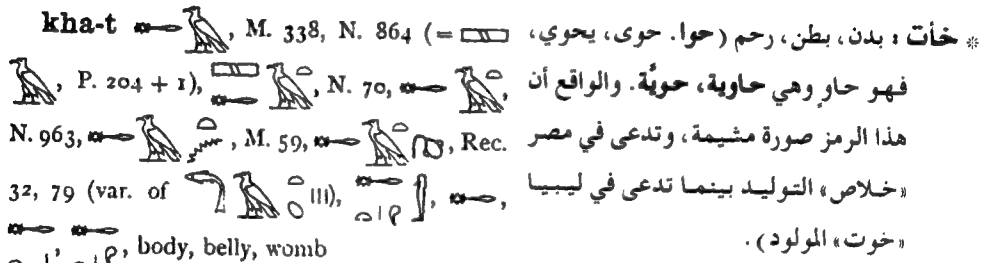 kha-t , M. 338, N. 864 (=
, P. 204 + 1), , N. 70, ,
N. 963, , M. 59, , Rec.
32, 79 (var. of ), , ,
, , body, belly, womb
* خأت : بدن، بطن، رحم (حوا. حوى، يحوي،
فهو حاوٍ وهي حاوية، حويَّة. والواقع أن
هذا الرمز صورة مشيمة، وتدعى في مصر
«خلاص» التوليد بينما تدعى في ليبيا
«خوت» المولود).